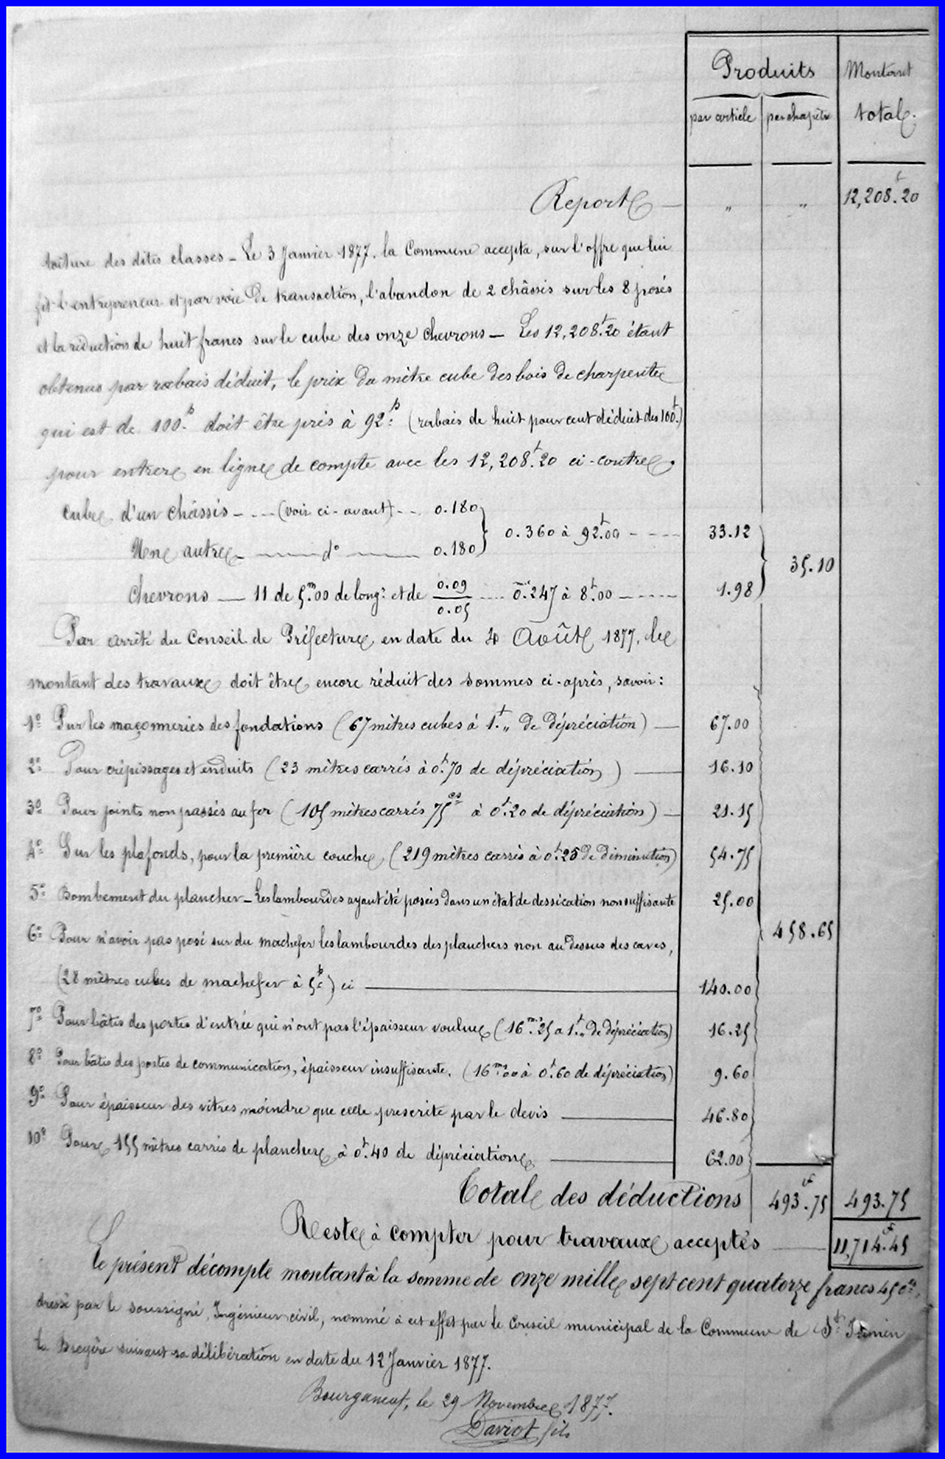 Produits
Montant
total
par article
par chapitre
Report — " " 12,208.f20
toiture des dites classes — Le 3 Janvier 1877, la Commune accepta, sur l'offre que lui
fit l'entrepreneur et par voie de transaction, l'abandon de 2 châssis sur les 8 posés
et la réduction de huit francs sur le cube des onze chevrons — Les 12,208.f20 étant
obtenus par rabais déduit, le prix du mètre cube des bois de charpente
qui est de 100.f doit être pris à 92.f (rabais de huit pour cent déduit des 100.f)
pour entrer en ligne de compte avec les 12,208.f20 ci-contre.
Cube d'un châssis - - - (voir ci-avant) - - 0.180
0.360 à 92.f00 - - - - 33.12
Une autre — do — 0.180
35.10
Chevrons — 11 de 5.m00 de long.r et de 0.09/0.05 ... 0.247 à 8.f00 - - - - 1.98
Par arrêté du Conseil de Préfecture en date du 4 Août 1877, le
montant des travaux doit être encore réduit des sommes ci-après, savoir :
1o Sur les maçonneries des fondations (67 mètres cubes à 1.f„ de dépréciation) — 67.00
2o Pour crépissages et enduits (23 mètres carrés à 0.f70 de dépréciation) — 16.10
3o Pour joints non passés au fer (105 mètres carrés 75 à 0.f20 de dépréciation) — 21.15
4o Sur les plafonds, pour la première couche (219 mètres carrés à 0.f25 de diminution) 54.75
5o Bombement du plancher — Les lambourdes ayant été posées dans un état de dessication non suffisante 25.00
458.65
6o Pour n'avoir pas posé sur du machefer les lambourdes des planchers non au dessus des caves,
(28 mètres cubes de machefer à 5.f) ci — 140.00
7o Pour bâtis des portes d'entrée qui n'ont pas l'épaisseur voulue (16.m25 à 1.f„ de dépréciation) 16.25
8o Pour bâtis des portes de communication, épaisseur insuffisante. (16.m00 à 0.f60 de dépréciation) 9.60
9o Pour épaisseur des vitres, moindre que celle prescrite par le devis — 46.80
10o Pour 155 mètres carrés de plancher à 0.f40 de dépréciation — 62.00
Total des déductions 493.f75 493.75
Reste à compter pour travaux acceptés — 11,714.f45
Le présent décompte montant à la somme de onze mille sept cent quatorze francs 45 c.es,
dressé par le soussigné, Ingénieur civil, nommé à cet effet par le Conseil municipal de la Commune de St
la Bregère suivant sa délibération en date du 12 Janvier 1877.
Bourganeuf, le 29 Novembre 1877.
Daviot fils